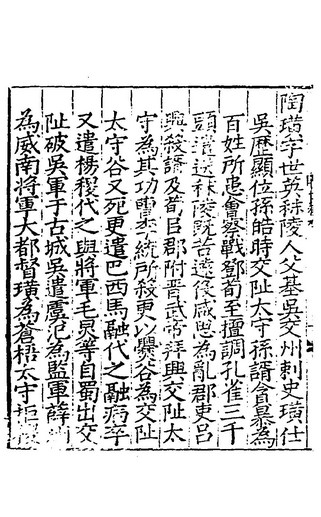 陶璜字世英秣陵人父基吳交州刺史璜仕
吳歷顯位孫皓時交阯太守孫諝貪暴為
百姓所患會察戰鄧荀至擅調孔雀三千
頭遣送秣陵既苦遠役咸思為亂郡吏呂
興殺諝及荀臣郡附晉武帝拜興交阯太
守為其功曹李統所殺更以爨谷為交阯
太守谷又死更遣巴西馬融代之融病卒
又遣楊稷代之與將軍毛炅等自蜀出交
阯破吳軍于古城吳遣虞汜為監軍薛珝
為威南將軍大都督璜為蒼梧太守拒稷